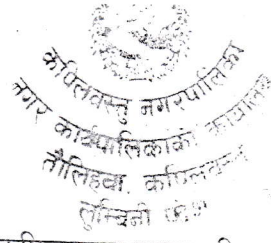 कपिलवस्तु नगरपालिका
नगर कार्यपालिकाको कार्यालय
तौलिहवा, कपिलवस्तु
लुम्बिनी प्रदेश